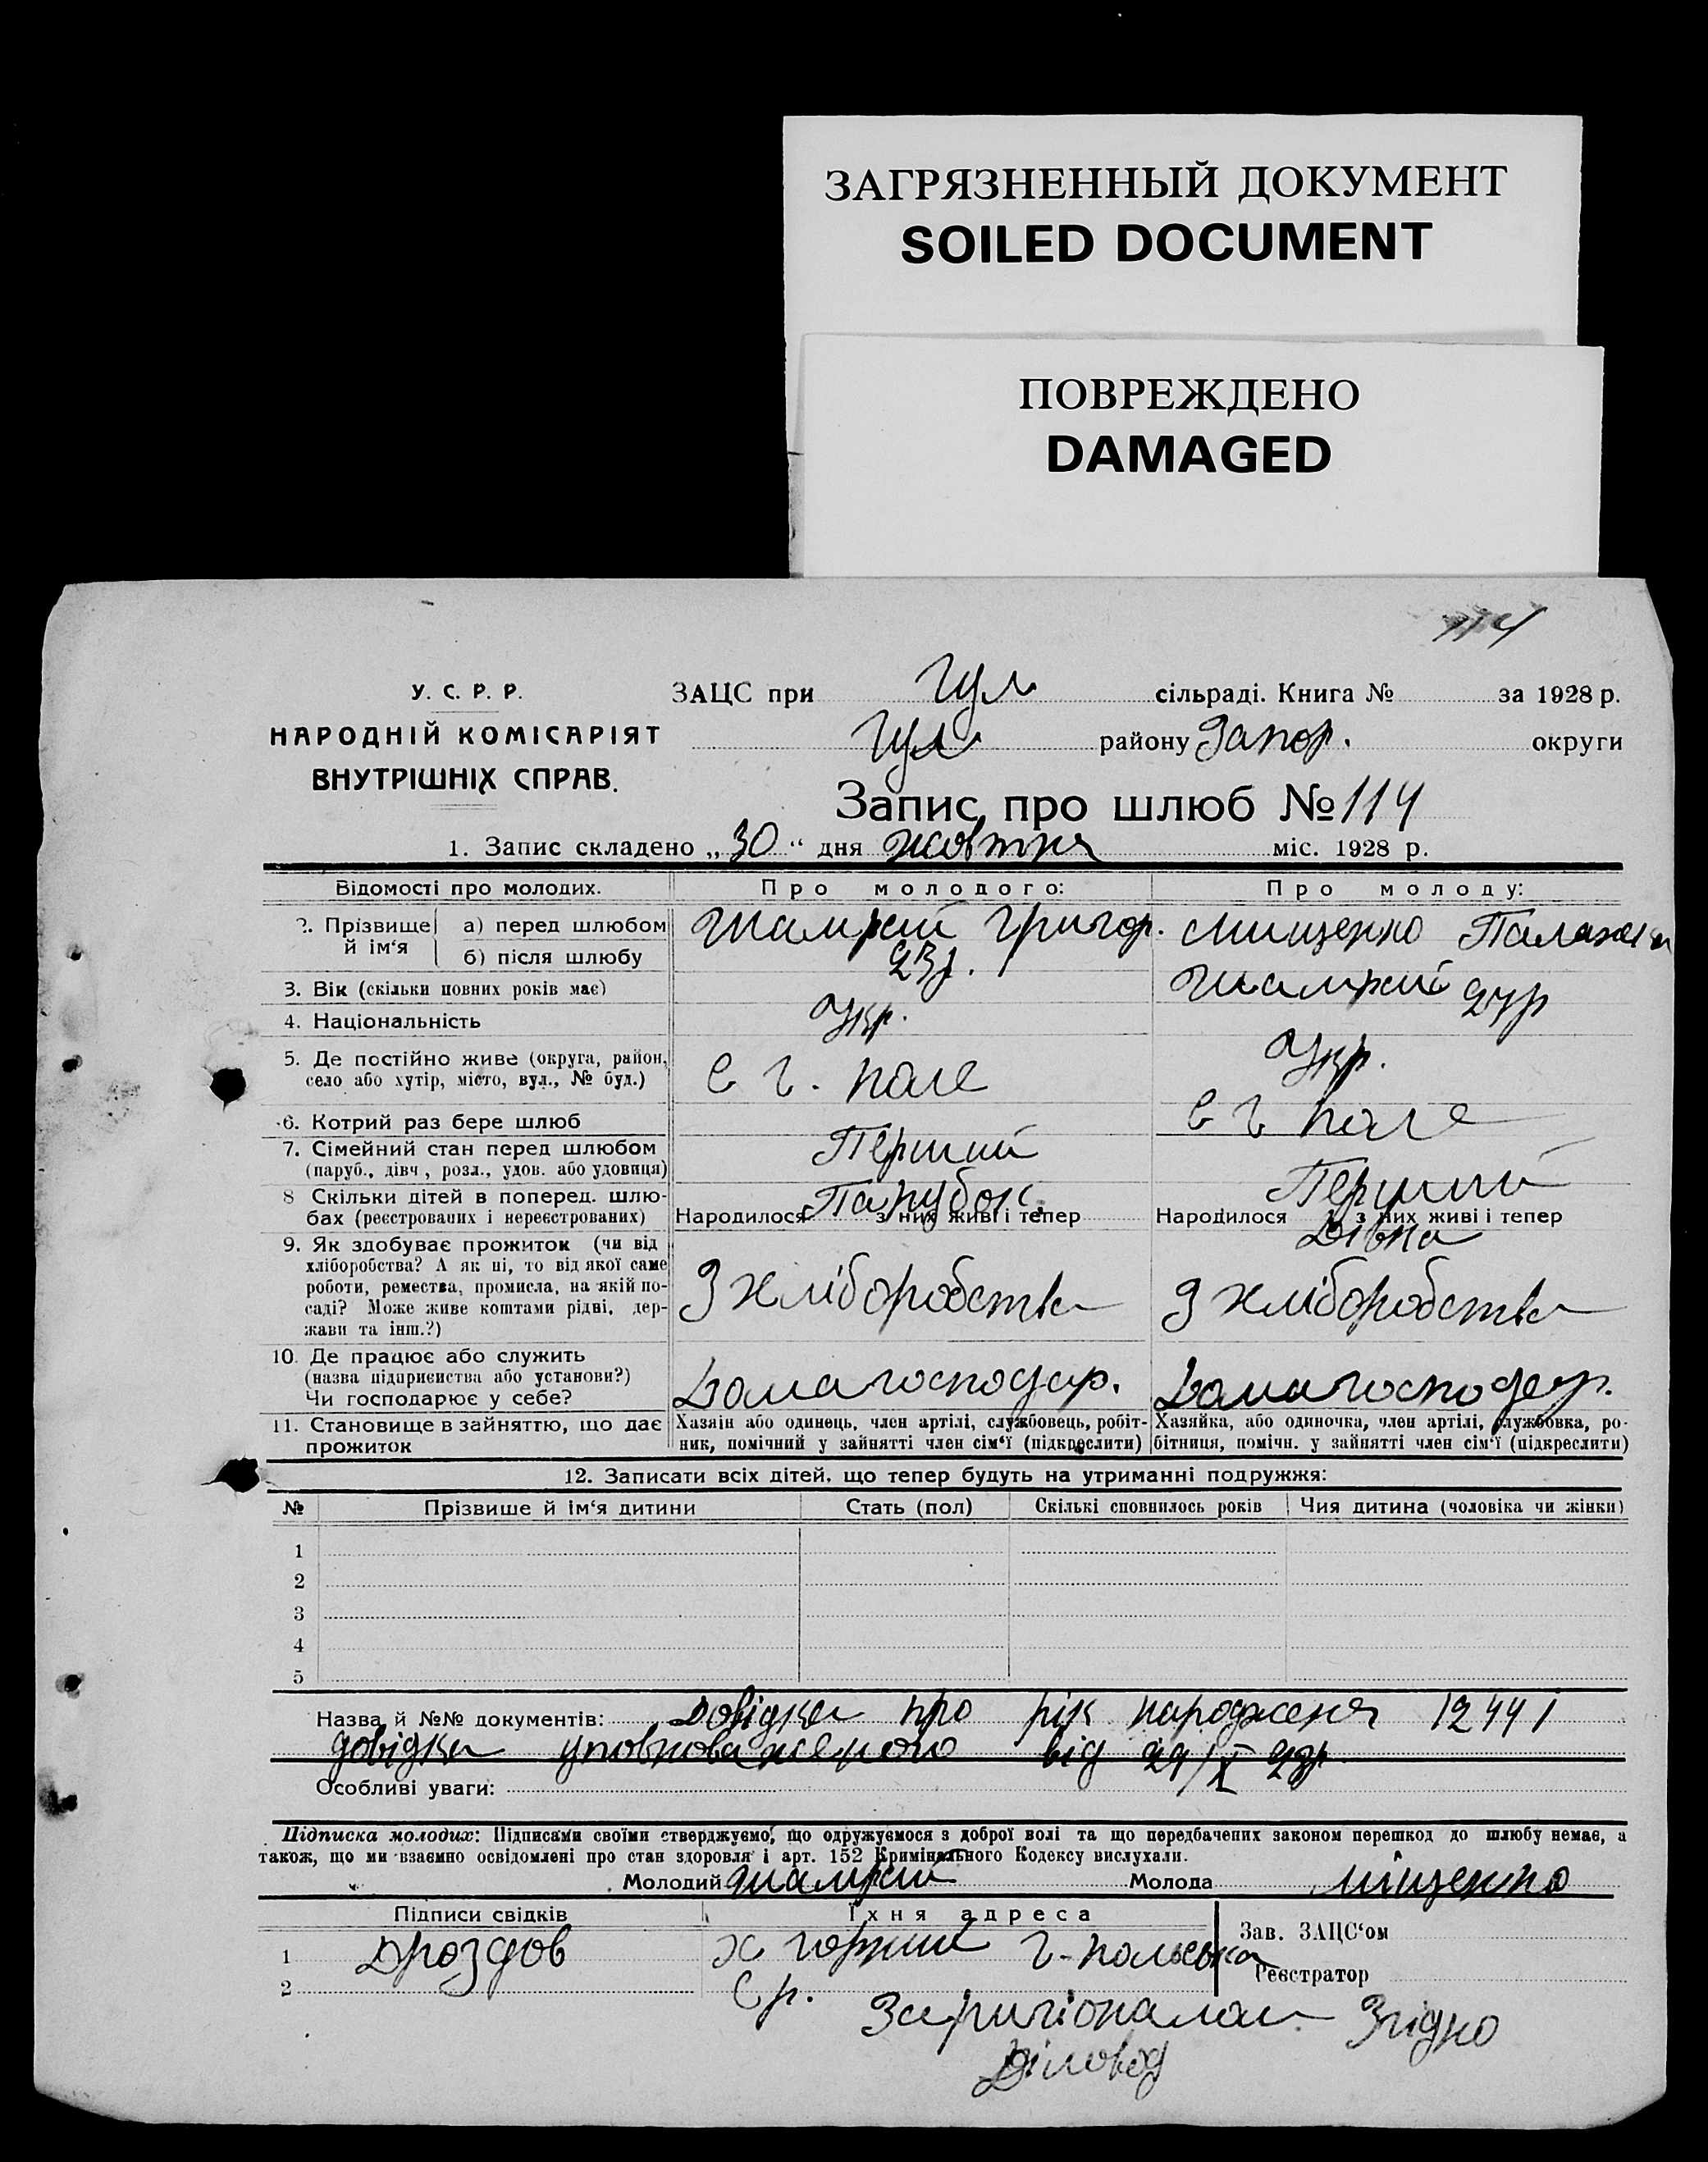 ЗАГРЯЗНЕННЫЙ ДОКУМЕНТ
SOILED DOCUMENT
ПОВРЕЖДЕНО
DAMAGED
114
У. С. Р. Р.
НАРОДНІЙ КОМІСАРІЯТ
ВНУТРІШНІХ СПРАВ.
ЗАЦС при Гул сільраді. Книга № за 1928 р.
Гул району Запор. округи
Запис про шлюб № 114
1. Запис складено „30“ дня жовтня міс. 1928 р.
Відомості про молодих. Про молодого: Про молоду:
2. Прізвище й ім‘я а) перед шлюбом Шамрай Григор. Мищенко Палажка
б) після шлюбу Шамрай
3. Вік (скільки повних років має) 23р. 24р
4. Національність Укр. Укр.
5. Де постійно живе (округа, район, село або хутір, місто, вул., № буд.) С Г. поле С Г поле
6. Котрий раз бере шлюб Перший Перший
7. Сімейний стан перед шлюбом (паруб., дівч, розл., удов. або удовиця) Парубок. Дівка
8 Скільки дітей в поперед. шлюбах (реєстрованих і нереєстрованих) Народилося з них живі і тепер Народилося з них живі і тепер
9. Як здобуває прожиток (чи від
хліборобства? А як ні, то від якої саме
роботи, ремества, промисла, на якій по-
саді? Може живе коштами рідні, дер-
жави та інш.?)
З хліборобства З хліборобства
10. Де працює або служить
(назва підприємства або установи?)
Чи господарює у себе?
Дома господар. Дома господар.
11. Становище в зайняттю, що дає прожиток
Хазяїн або одинець, член артілі, службовець, робіт-
ник, помічний у зайнятті член сім‘ї (підкреслити)
Хазяйка, або одиночка, член артілі, службовка, ро-
бітниця, помічн. у зайнятті член сім‘ї (підкреслити)
12. Записати всіх дітей, що тепер будуть на утриманні подружжя:
№ Прізвише й ім‘я дитини Стать (пол) Скількі сповнилось років Чия дитина (чоловіка чи жінки)
1
2
3
4
5
Назва й №№ документів: Довідка про рік народженя 12441
довідка уповноваженого від 29/X 28р
Особливі уваги:
Підписка молодих: Підписами своїми стверджуємо, що одружуємося з доброї волі та що передбачених законом перешкод до шлюбу немає, а
також, що ми взаємно освідомлені про стан здоровля і арт. 152 Кримінального Кодексу вислухали.
Молодий Шамрай Молода Міщенко
Підписи свідків Їхня адреса Зав. ЗАЦС‘ом
1 Дроздов х горький Г-польська Реєстратор
2 Ср.
Згідно
Діловод